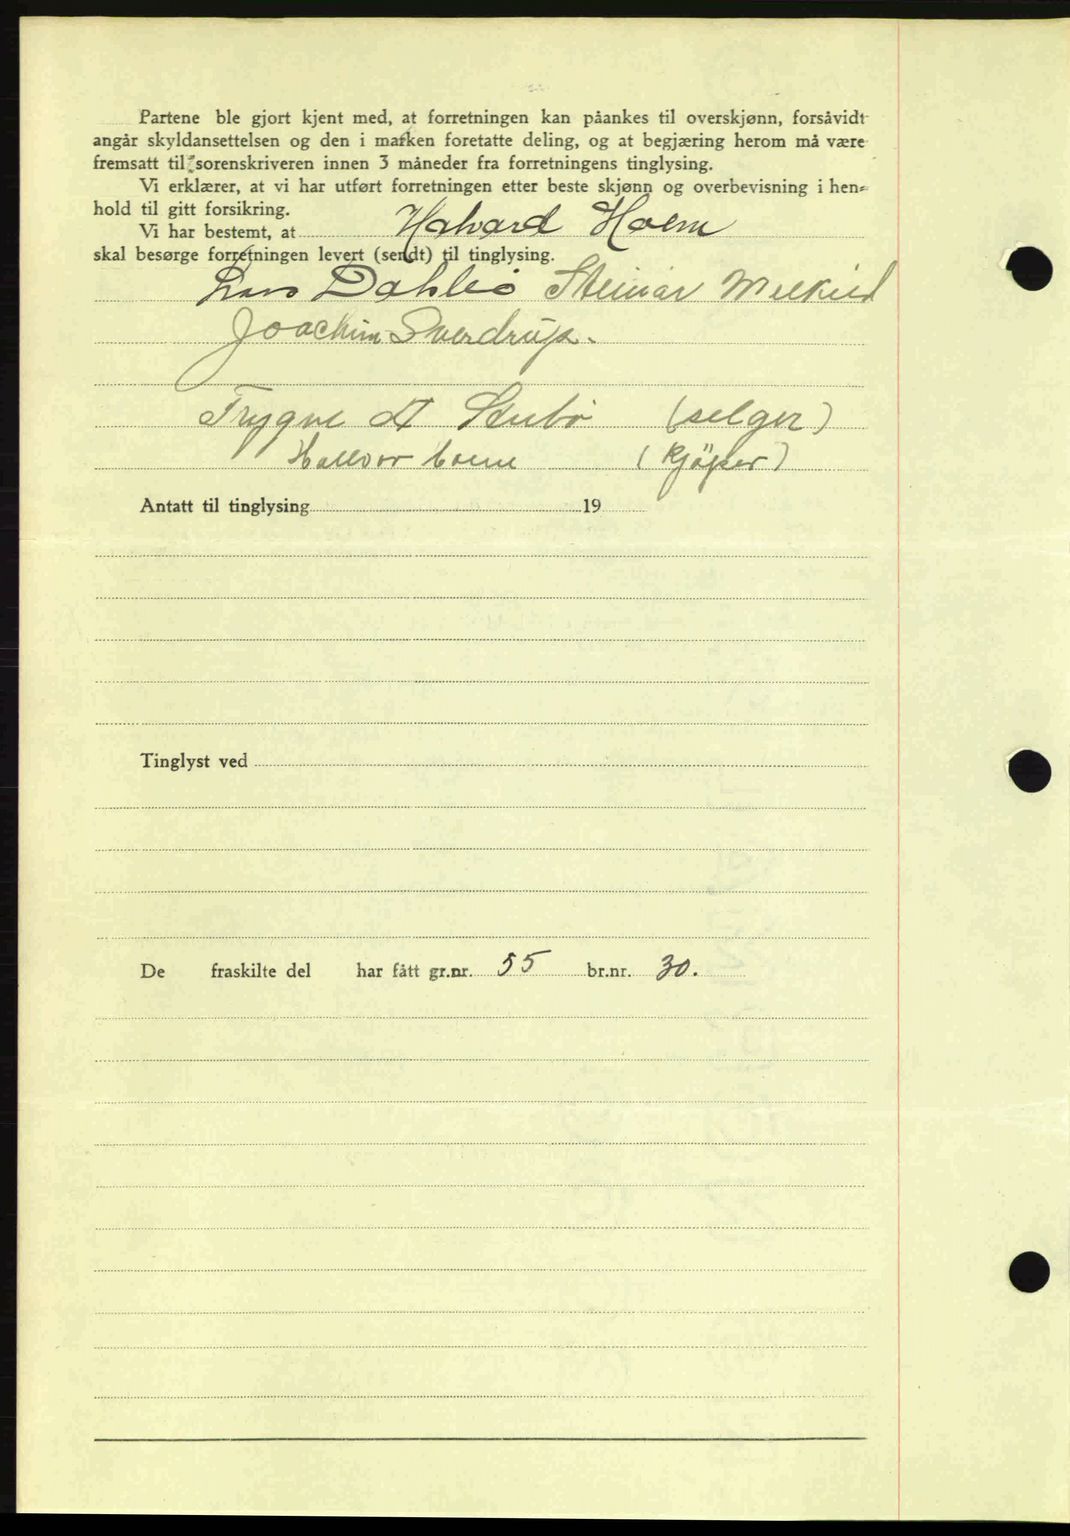 Partene ble gjort kjent med, at forretningen kan påankes til overskjønn, forsåvidt
angår skyldansettelsen og den i marken foretatte deling, og at begjæring herom må være
fremsatt til sorenskriveren innen 3 måneder fra forretningens tinglysing.
Vi erklærer, at vi har utført forretningen etter beste skjønn og overbevisning i hen-
hold til gitt forsikring.
Vi har bestemt, at Halvard Holm
skal besørge forretningen levert (sendt) til tinglysing.
Lars Dahlø Steinar
Joachim Sverdrup.
Trygve Stubø (selger)
Hallvor (kjöper)
Antatt til tinglysing 19
Tinglyst ved
De fraskilte del har fått gr.nr. 55 br.nr. 30.